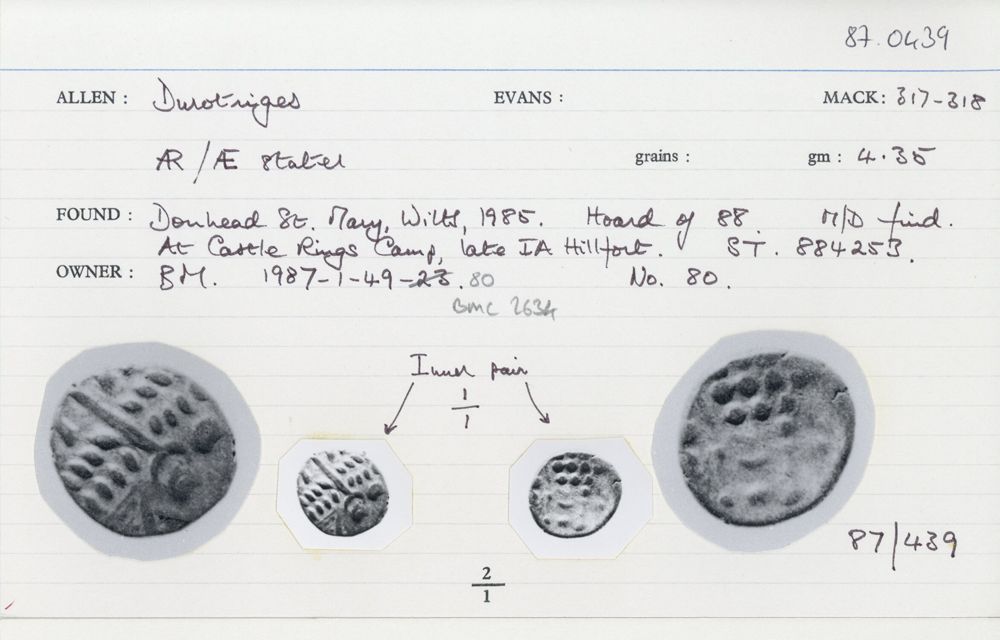 87.0439
ALLEN : Durotriges EVANS : MACK: 317-318
AR/Æ stater grains : gm : 4.35
FOUND : Donhead St. Mary, Wilts, 1985. Hoard of 88. M/D find.
At Castle Rings Camp, late IA Hillfort. ST. 884253.
OWNER : BM. 1987-1-49-23.80 No. 80.
BMC 2634
Inner pair
1
1
87/439
2
1